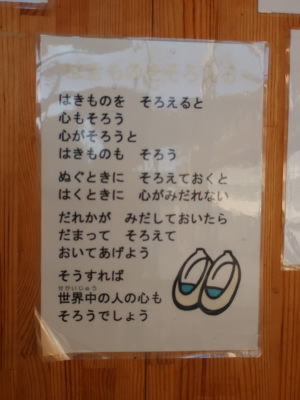 はきものをそろえる
はきものを　そろえると
心もそろう
心がそろうと
はきものも　そろう
ぬぐときに　そろえておくと
はくときに　心がみだれない
だれかが　みだしておいたら
だまって　そろえて
おいてあげよう
そうすれば
世界中の人の心も
そろうでしょう